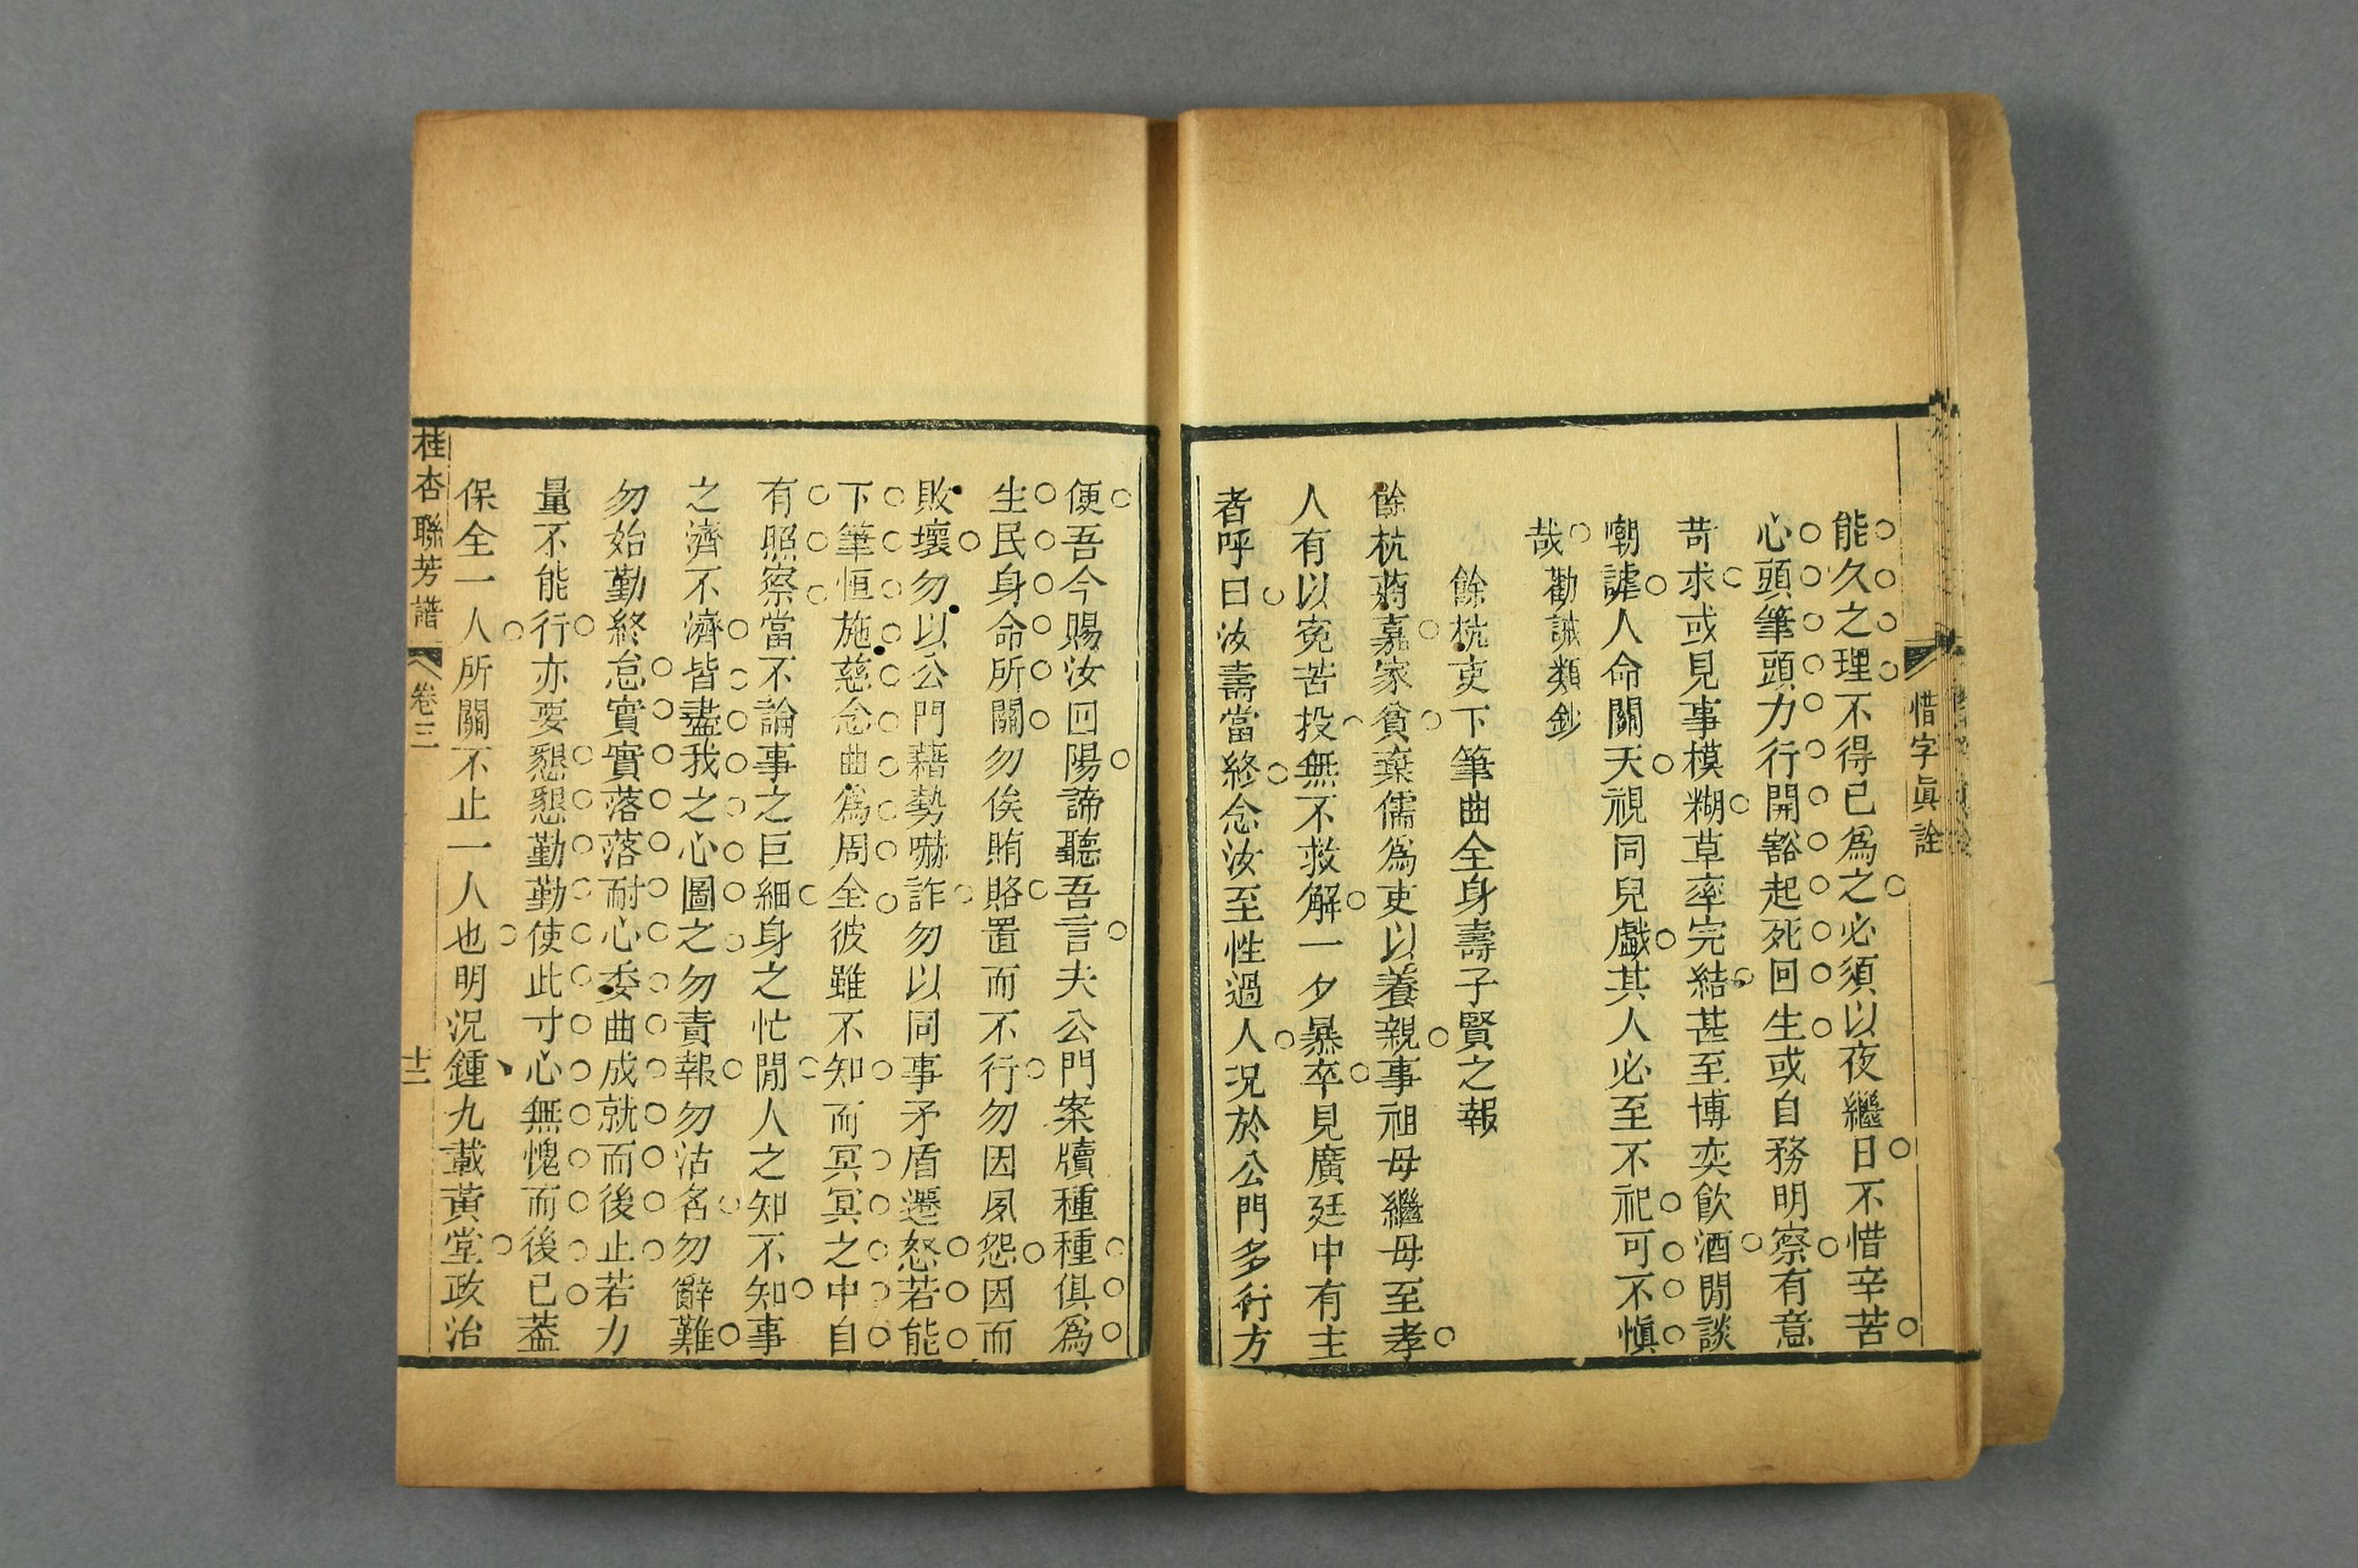 惜字眞詮
能久之理不得已爲之必須以夜繼日不惜辛苦
心頭筆頭力行開豁起死回生或自務明察有意
苛求或見事模糊草率完結甚至博奕飲酒閒談
嘲謔人命關天視同兒戲其人必至不祀可不愼
哉勸誡類鈔
餘杭吏下筆曲全身壽子賢之報
餘杭蔣嘉家貧棄儒爲吏以養親事祖母繼母至孝
人有以寃苦投無不救解一夕暴卒見廣廷中有主
者呼曰汝壽當終念汝至性過人况於公門多行方
便吾今賜汝回陽諦聽吾言夫公門案牘種種俱爲
生民身命所關勿俟賄賂置而不行勿因夙怨因而
敗壞勿以公門藉勢嚇詐勿以同事矛盾遷怒若能
下筆恒施慈念曲爲周全彼雖不知而冥冥之中自
有照察當不論事之巨細身之忙閒人之知不知事
之濟不濟皆盡我之心圖之勿責報勿沽名勿辭難
勿始勤終怠實實落落耐心委曲成就而後止若力
量不能行亦要懇懇勤勤使此寸心無愧而後已葢
保全一人所關不止一人也明况鍾九載黃堂政治
桂杏聯芳譜
卷三
十三